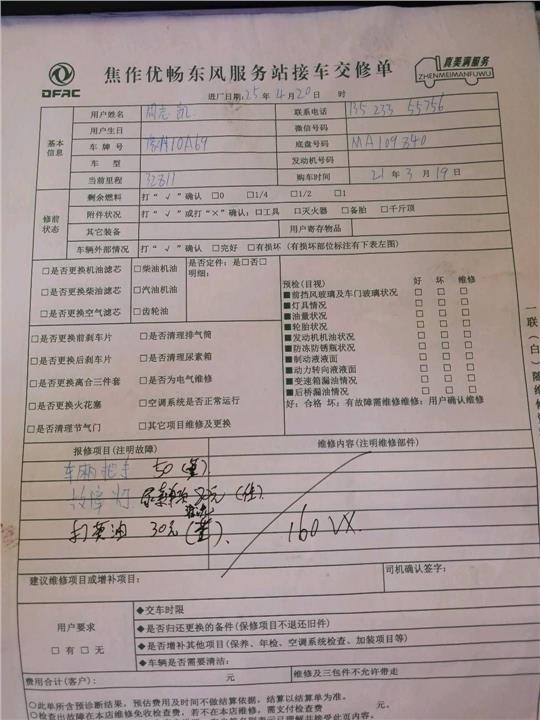 DFAC
焦作优畅东风服务站接车交修单
真美满服务
ZHENMEIMANFUWU
进厂日期:25年4月20日 时
基本信息
用户姓名 联系电话 135 233 55756
用户生日 微信号码
车牌号 10A69 底盘号码 MA109340
车型 发动机号码
当前里程 32811 购车时间 21年3月19日
修前状态
剩余燃料 打“√”确认 □0 □1/4 □1/2 □1
附件状况 打“√”或打“×”确认:□工具 □灭火器 □备胎 □千斤顶
其它装备 用户寄存物品
车辆外部情况 打“√”确认 □完好 □有损坏(有损坏部位标注有下表左图)
□是否更换机油滤芯 □柴油机油
□是否更换柴油滤芯 □汽油机油
□是否更换空气滤芯 □齿轮油
是否定件:是□否□
明细:
□是否更换前刹车片 □是否清理排气筒
□是否更换后刹车片 □是否清理尿素箱
□是否更换离合三件套 □是否为电气维修
□是否更换火花塞 □空调系统是否正常运行
□是否清理节气门 □其它项目维修及更换
预检(目视) 好 坏 维修
■前挡风玻璃及车门玻璃状况 □ □ □
■灯具情况 □ □ □
■油量状况 □ □ □
■轮胎状况 □ □ □
■发动机机油状况 □ □ □
■防冻防锈瓶状况 □ □ □
■制动液液面 □ □ □
■动力转向液液面 □ □ □
■变速箱漏油情况 □ □ □
■后桥漏油情况 □ □ □
好:合格 坏:有故障需维修维修:用户确认维修
报修项目(注明故障) 维修内容(注明维修部件)
车辆 50
故障灯
打黄油 30元
160 VX.
建议维修项目或增补项目: 司机确认签字:
用户要求
□有 □无
◆交车时限
◆是否归还更换的备件(保修项目不退还旧件)
◆是否增补其他项目(保养、年检、空调系统检查、加装项目等)
◆车辆是否需要清洁:
费用合计(客户): 元 维修及三包件不允许带走
○此单所含预诊断结果,预估费用及时间不做结算依据,结算以结算单为准。
○检查出故障在本店维修免收检查费,若不在本店维修,需支付检查费 元。
一联(白)随维修